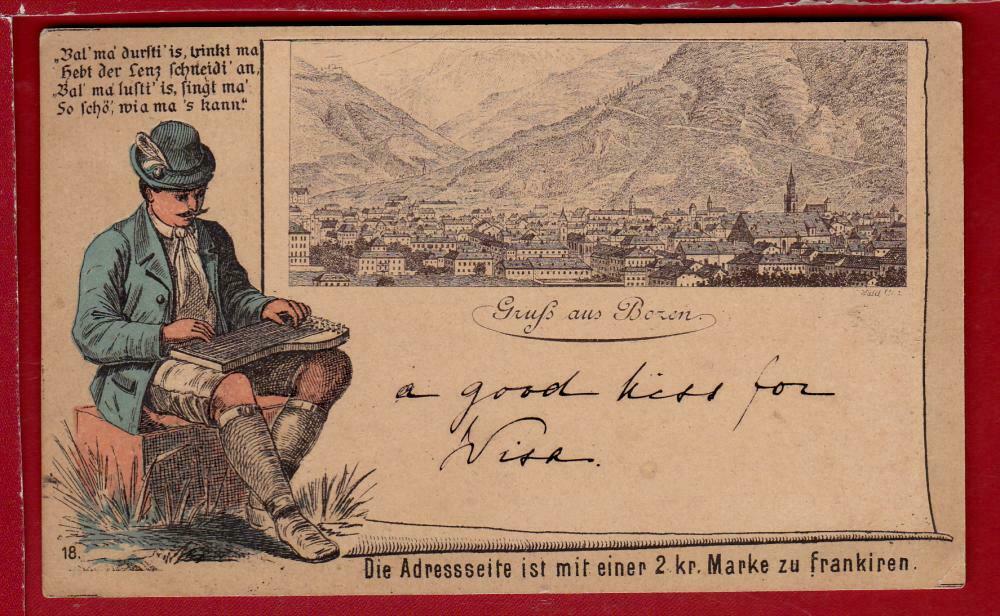 „Bal' ma' dursti' is, trinkt ma'
Hebt der Lenz schneidi' an,
Bal' ma' lusti' is, singt ma'
So schö', wia ma 's kann.“
Gruß aus Bozen.
a good kiss for
Nisa.
18.
Die Adressseite ist mit einer 2 kr. Marke zu frankiren.